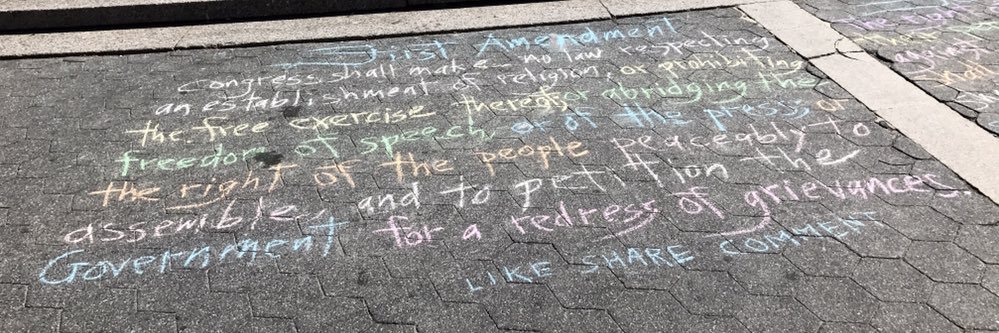 First Amendment
congress shall make no law respecting
an establishment of religion, or prohibiting
the free exercise thereof; or abridging the
freedom of speech, or of the press, or
the right of the people peaceably to
assemble, and to petition the
Government for a redress of grievances
LIKE SHARE COMMENT